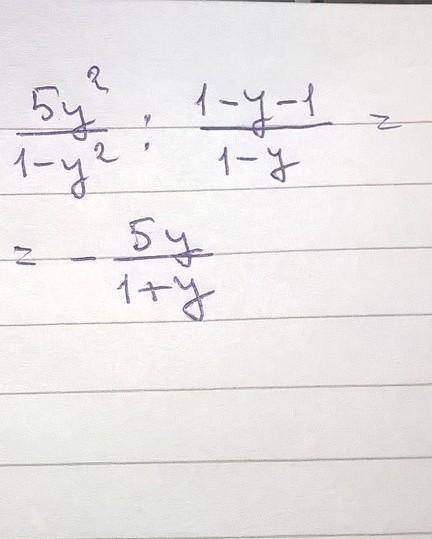 5y² / 1-y² : 1-y-1 / 1-y =
= - 5y / 1+y